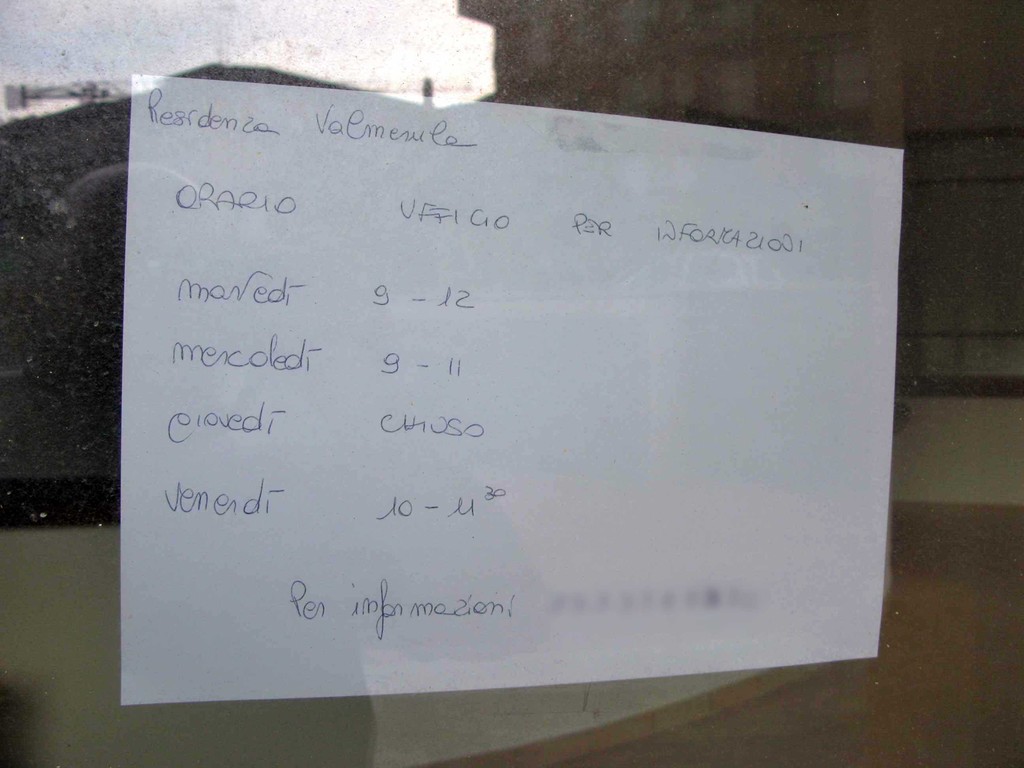 Residenza Valmerula
ORARIO UFFICIO PER INFORMAZIONI
martedì 9 - 12
mercoledì 9 - 11
giovedì CHIUSO
venerdì 10 - 11³⁰
Per informazioni